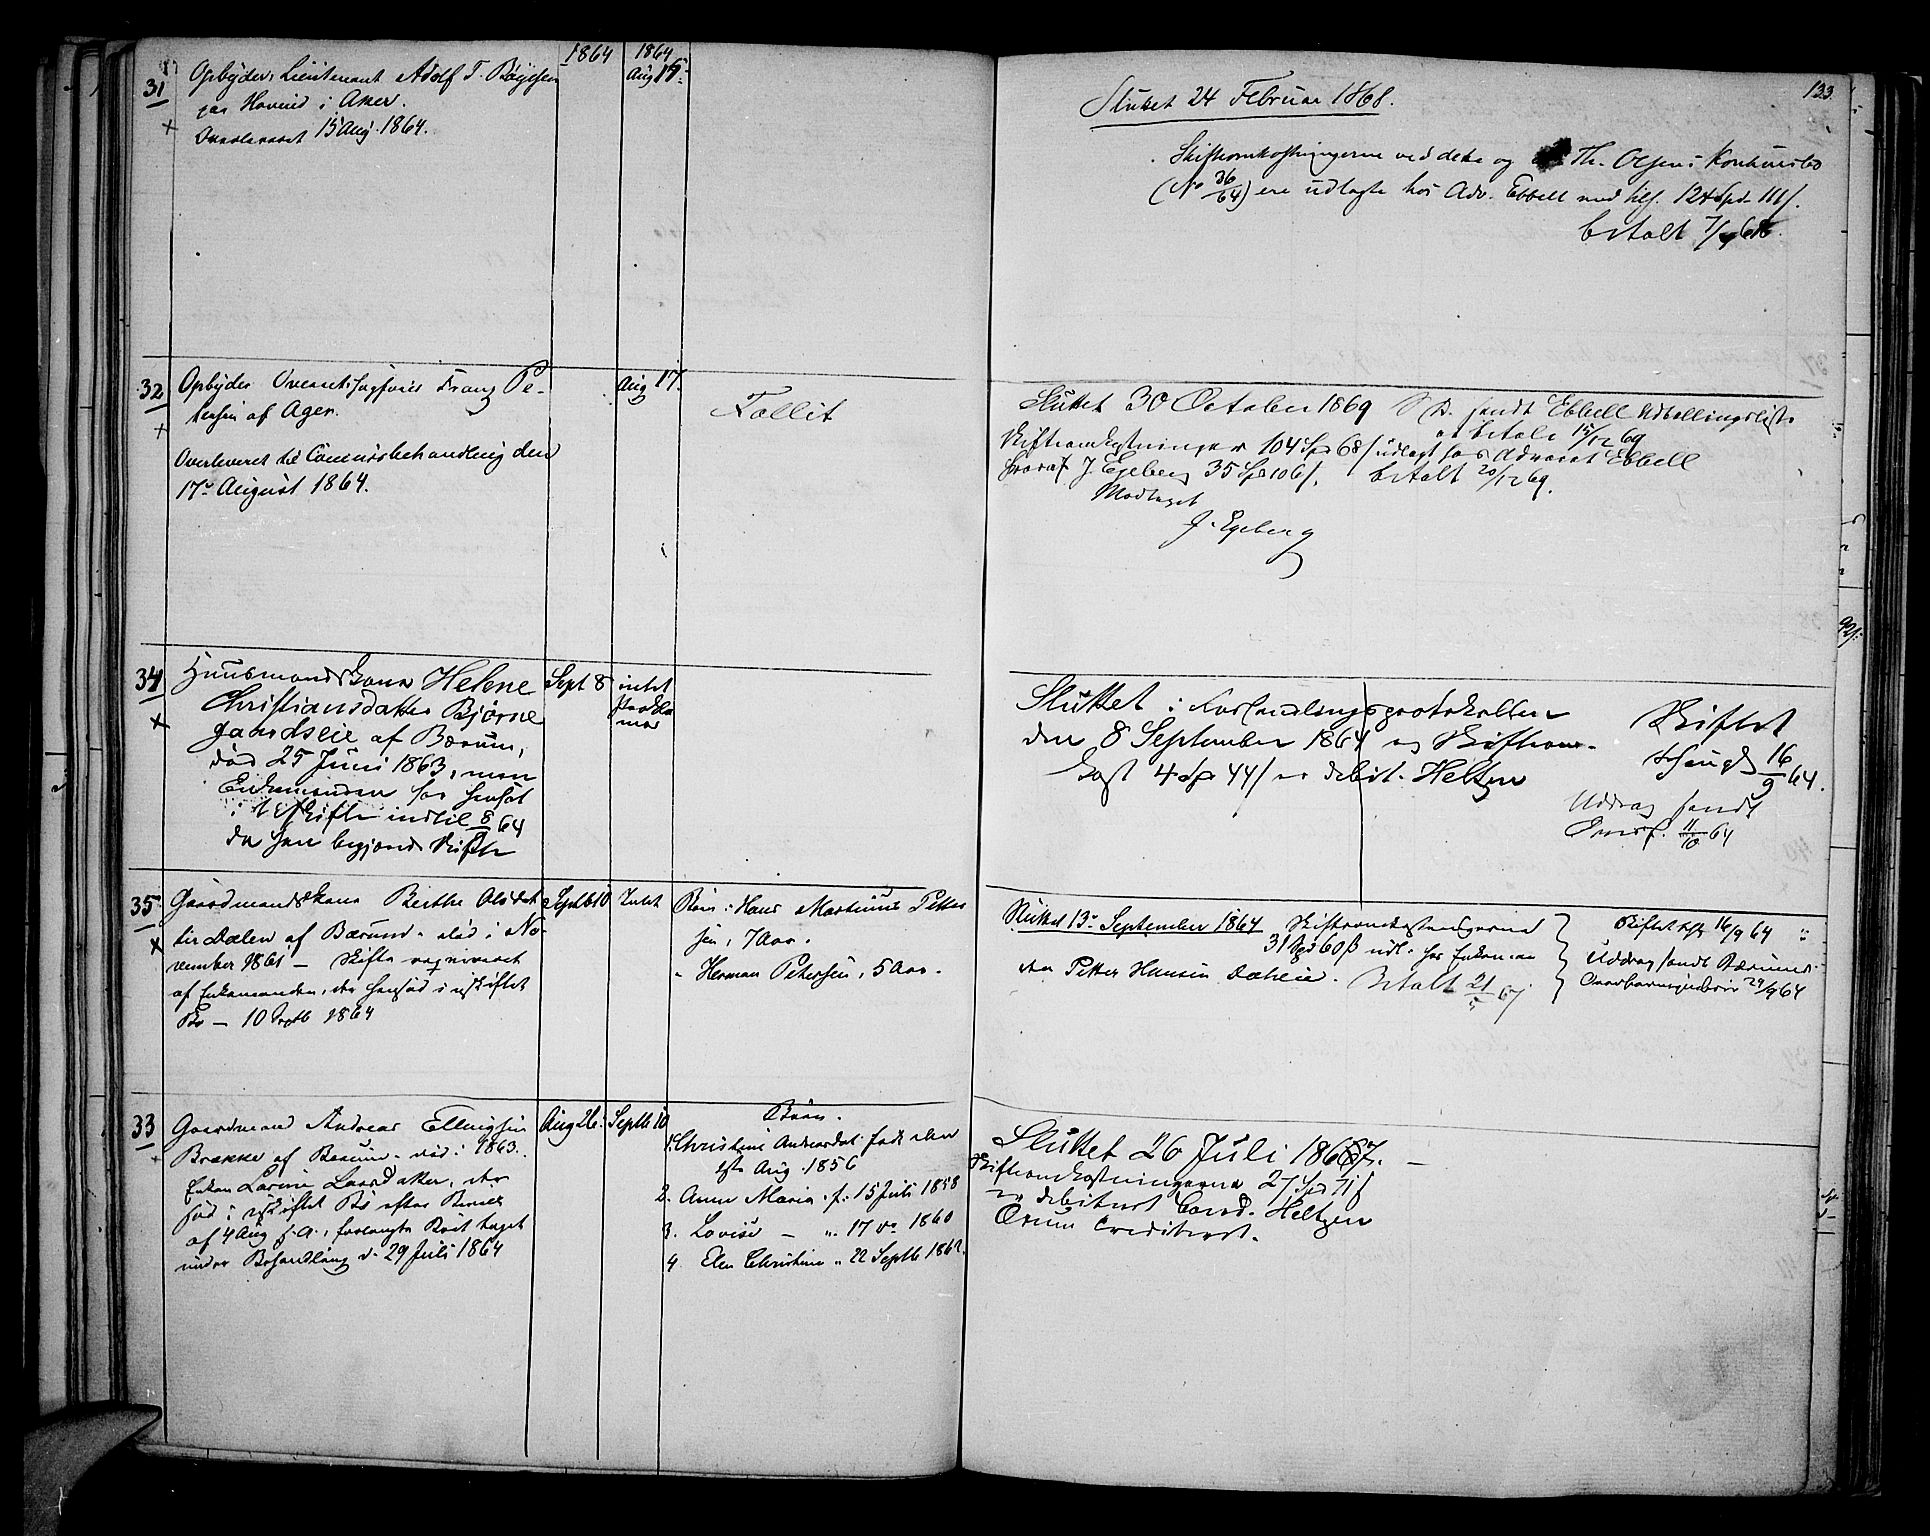 133
1864
1864
31
Opbyder Lieutenant Adolf T. Boyesen
paa Hovind i Aker.
Overleveret 15 Aug. 1864.
Aug 15.
Sluttet 24 Februar 1868.
Skifteomkostningerne ved dette og Th. Olsens Konkursbo
(No 36/64) ere udlagte hos Adv. Ebbell med tils. 124 Spd. 111 s.
betalt
32
Opbyder Overretssagfører Franz Pe-
tersen af Ager.
Overleveret til Concursbehandling den
17de August 1864.
Aug 17.
Fallit
Sluttet 30 October 1869 S. D. sendt Ebbell Udbetalingsliste
betalt 15/12 69
Skifteomkostninger 104 Spd 68 s udlagt hos Advocat Ebbell
hvoraf J. Egeberg 35 Spd 106 s. betalt 20/12 69.
Modtaget
J. Egeberg
34
Huusmandskone Helene
Christiansdatter Bjørne
gaardseie af Bærum,
død 25 Juni 1863, men
Enkemanden har hensat
i uskifte indtil 8/9 64
da han begjærede Skifte
Sept 8
intet
Sluttet i Forhandlingsprotokollen
den 8 September 1864 og Skifteom-
kost 4 Spd 44 s er debit. Heltzen
Skiftet
16/9 64.
Uddrag sendt
Overf. 11/10 64
35
Gaardmandskone Berthe Olsdat
ter Dælen af Bærum. død i No-
vember 1861 — Skifte reqvireret
af Enkemanden, der hensad i uskiftet
Bo — 10 Septb 1864
Septb 10
Intet
Børn: Hans Martinus Petter
sen, 7 Aar.
" Herman Petersen, 5 Aar.
Sluttet 13de September 1864 Skifteomkostningerne
31 Spd 60 β udl. hos Enkeman
den Petter Hansen Dælen. Betalt
Skiftet 16/9 64
Uddrag sendt Bærums
Overformynderi 29/9 64
33
Gaardmand Andreas Ellingsen
Brække af Bærum. død: 1863.
Enken Larine Larsdatter, der
sad i uskiftet Bo efter
af 4 Aug f. A., forlangte Boet taget
under Behandling d. 29 Juli 1864
Aug 26.
Septb 10
Børn.
1. Christine Andreasdat. født den
Aug. 1856
2. Anne Maria. f. 15 Juli 1858
3. Lovise — ". 17 1860
4 Elen Christine " 22 Septb 1862.
Sluttet 26 Juli 1867. —
Skifteomkostningerne 27 Spd 71 s
er debiteret Heltzen
crediteret.